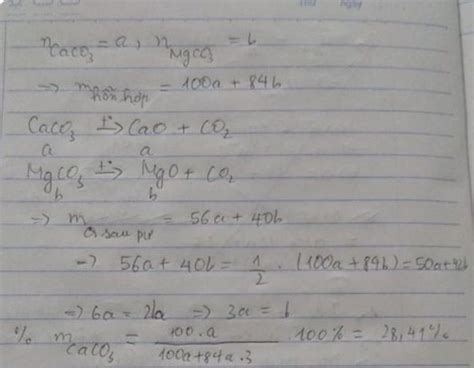 n CaCO₃ = a, n MgCO₃ = b
=> m hỗn hợp = 100a + 84b
CaCO₃ t°→ CaO + CO₂
a a
MgCO₃ t°→ MgO + CO₂
b b
=> m r sau pư = 56a + 40b
-> 56a + 40b = 1/2 . (100a + 84b) = 50a + 42b
=> 6a = 2b => 3a = b
% m CaCO₃ = 100.a / 100a + 84a.3 . 100% = 28,41%